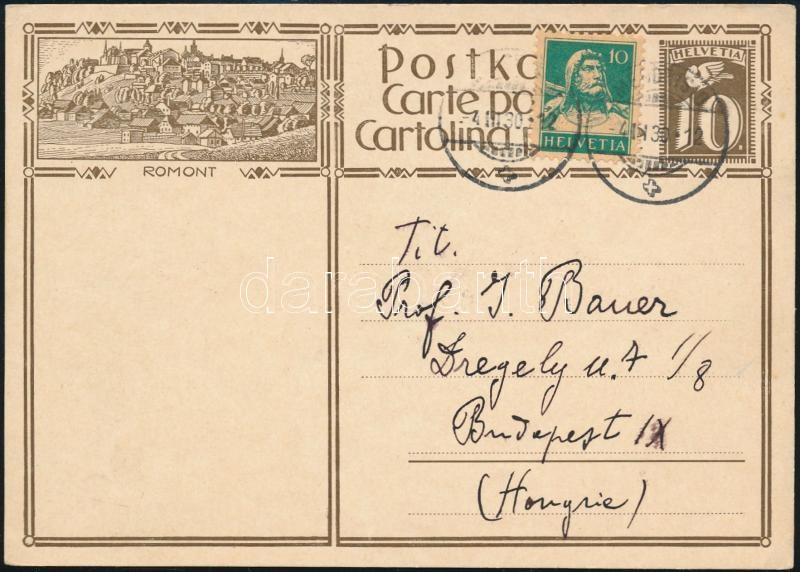 Postka
Carte po
Cartolina
10
HELVETIA
HELVETIA
10
ROMONT
Tit.
Prof. I. Bauer
Dregely u. 7 1/8
Budapest IX
(Hongrie)
darabanth